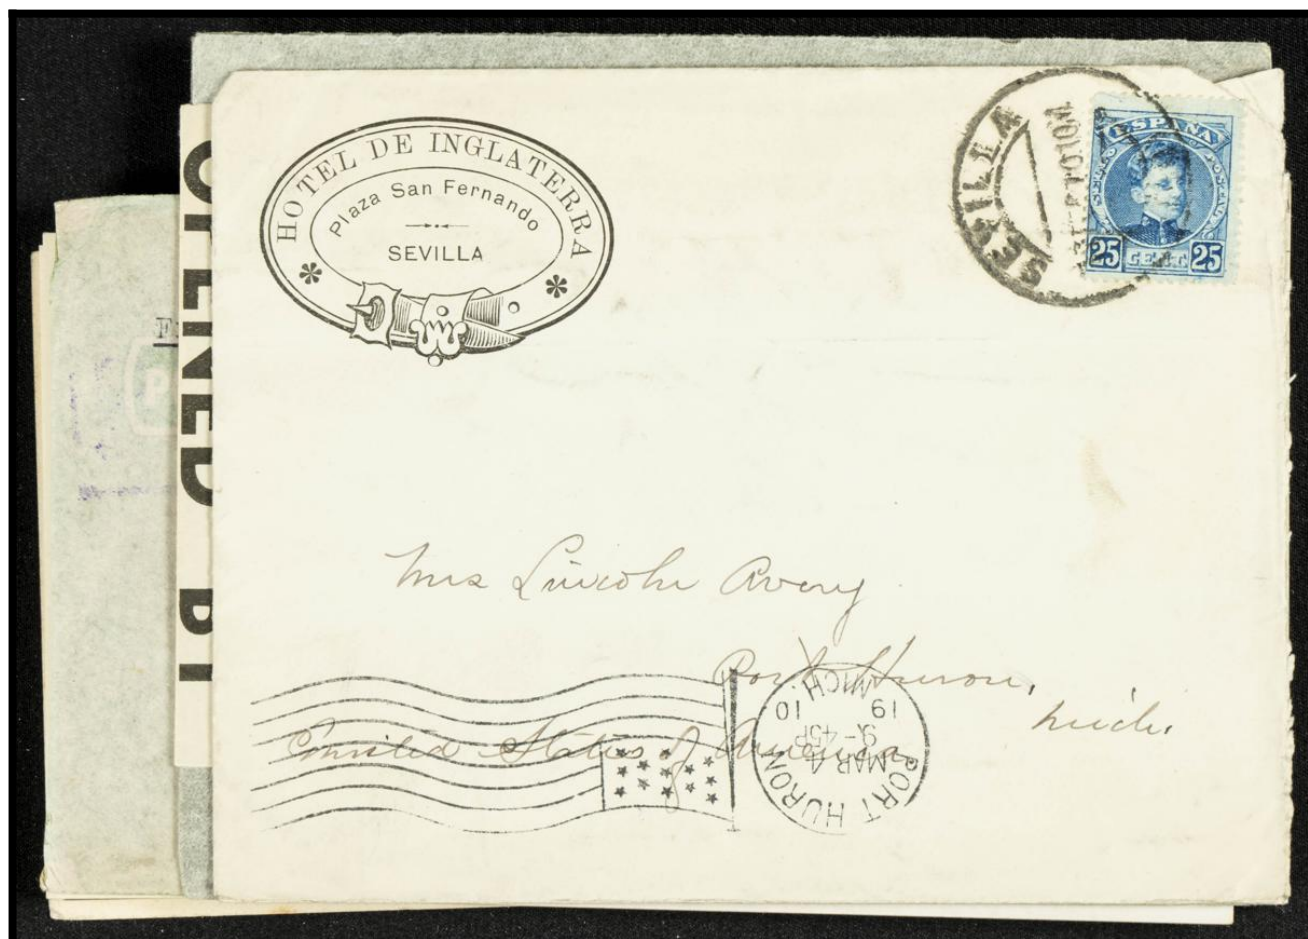 HOTEL DE INGLATERRA
Plaza San Fernando
SEVILLA
SEVILLA
ESPAÑA
25 CENT. 25
OPENED BY
Mrs Lincoln Avery
Port Huron,
Mich.
United States of America
PORT HURON
MICH.
MAR 4
9-45P
19 10